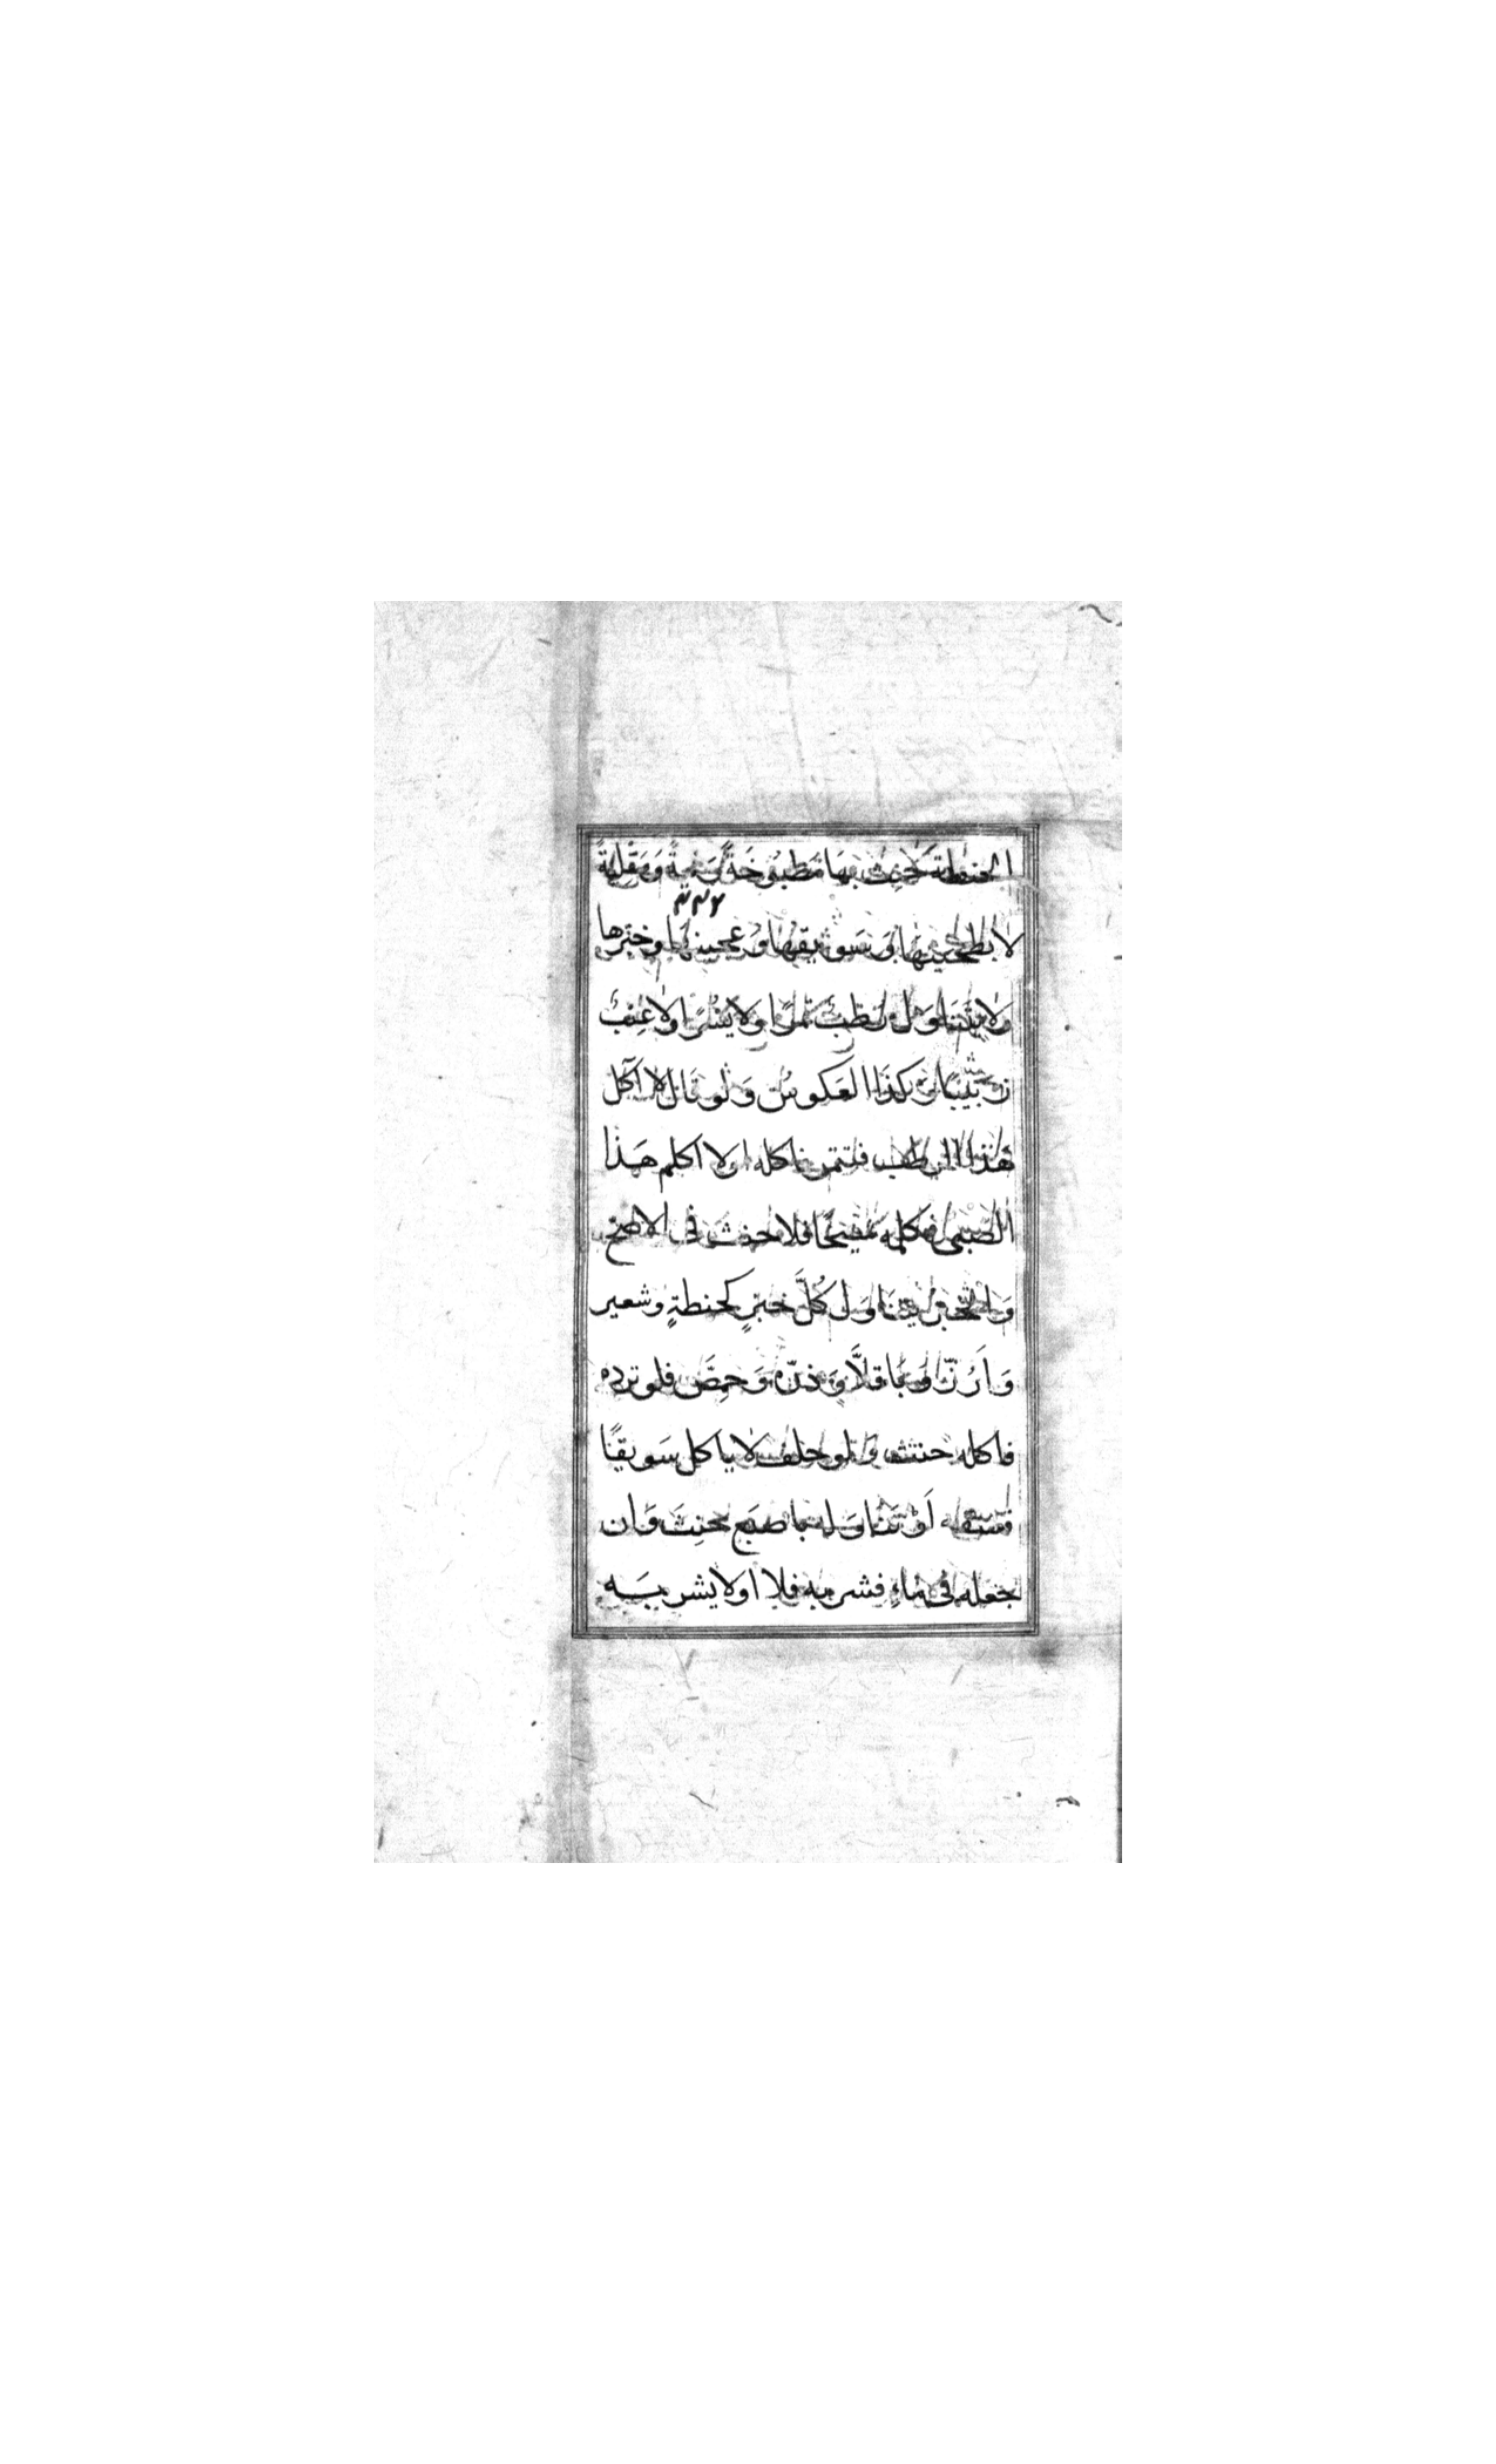 الحنطة حنث بها مطبوخة ونيّة ومقليّة
٢٢٦
لا بطحينها وسويقها وعجينها وخبزها
ولا يتناول رطب تمرًا ولا بسرًا ولا عنب
زبيبًا وكذا العكوس ولو قال لا آكل
هذا الرطب فتتمر فاكله او لا اكلم هذا
الصبي فكلمه شيخًا فلا حنث في الاصح
والخبز يتناول كلّ خبزٍ كحنطةٍ وشعير
وَاَرُزّ وباقلاّ وذرة وحمص فلو ثرده
فاكله حنث ولو حلف لا ياكل سويقًا
فسفه اَوْ تناوله باصبع حنث وان
جعله في ماءٍ فشربه فلا او لا يشربه